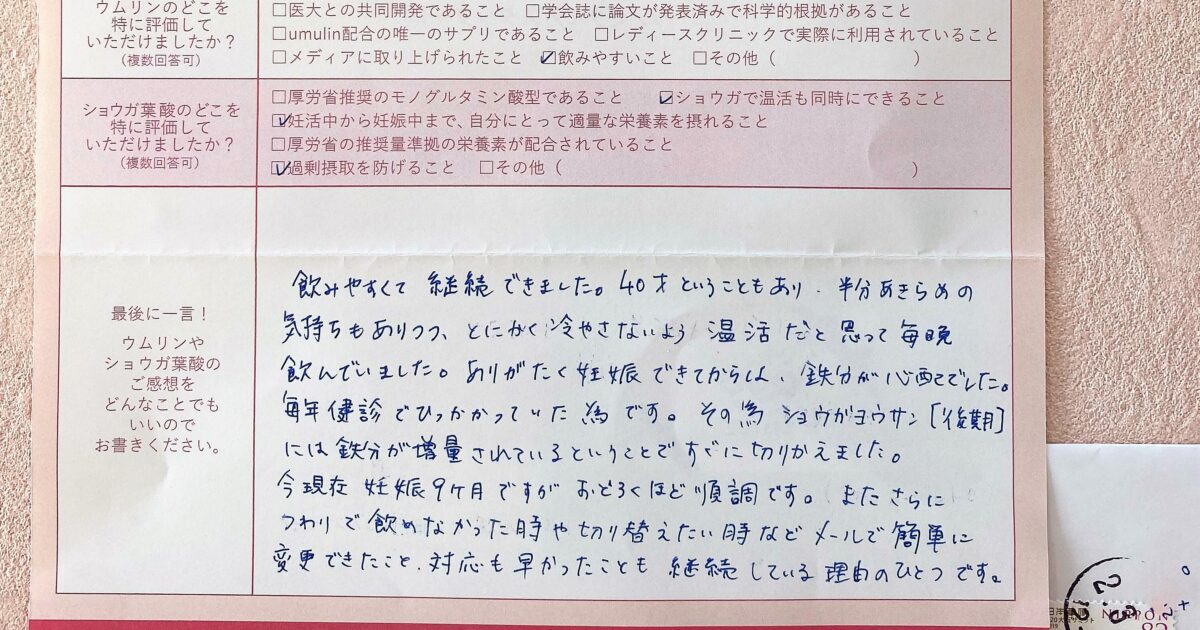 ウムリンのどこを
特に評価して
いただけましたか？
（複数回答可）
□医大との共同開発であること □学会誌に論文が発表済みで科学的根拠があること
□umulin配合の唯一のサプリであること □レディースクリニックで実際に利用されていること
□メディアに取り上げられたこと ☑飲みやすいこと □その他（ ）
ショウガ葉酸のどこを
特に評価して
いただけましたか？
（複数回答可）
□厚労省推奨のモノグルタミン酸型であること ☑ショウガで温活も同時にできること
☑妊活中から妊娠中まで、自分にとって適量な栄養素を摂れること
□厚労省の推奨量準拠の栄養素が配合されていること
☑過剰摂取を防げること □その他（ ）
最後に一言！
ウムリンや
ショウガ葉酸の
ご感想を
どんなことでも
いいので
お書きください。
飲みやすくて 継続できました。40才ということもあり、半分あきらめの
気持ちもありつつ、とにかく冷やさないよう 温活だと思って毎晩
飲んでいました。ありがたく妊娠できてからは、鉄分が心配でした。
毎年健診でひっかかっていた為です。その為 ショウガヨウサン［後期］
には鉄分が増量されているということですぐに切りかえました。
今現在 妊娠9ケ月ですが おどろくほど順調です。またさらに
つわりで飲めなかった時や切り替えたい時などメールで簡単に
変更できたこと、対応も早かったことも 継続している理由のひとつです。
NIPPON